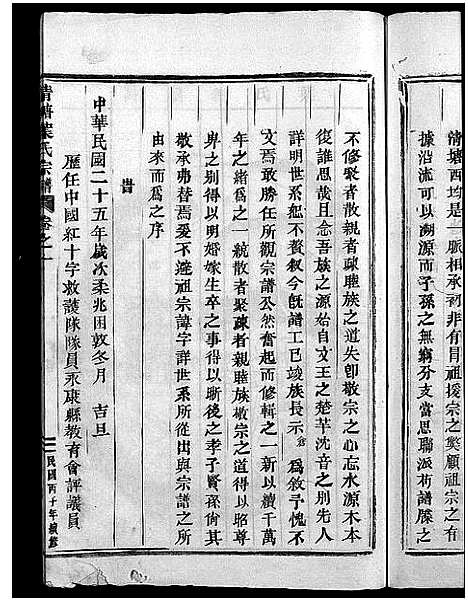 清塘西均是一脈相承初非有冒祖援宗之獘顧祖宗之有
據沿流可以溯源而子孫之無窮分支當思聯派茍譜牒之
不修聚者散親者疎睦族之道失卽敬宗之心忘水源木本
復誰思哉且念吾族之源始自文王之楚莘沈音之别先人
詳明世系恕不贅叙今旣譜工已竣族長示倉爲敘予愧不
文焉敢勝任所觀宗譜公然奮起而修輯之一新以續千萬
年之緒爲之一統散者聚疎者親睦族敬宗之道得以昭尊
卑之别得以明婚嫁生卒之事得以晰後之孝子賢孫尙其
敬承弗替焉爰不避祖宗諱字詳世系所從出與宗譜之所
由來而爲之序
旹
中華民國二十五年歲次柔兆困敦冬月 吉旦
歷任中國紅十字救護隊隊員永康縣教育會評議員
清塘葉氏宗譜 卷之一
民國丙子年續修